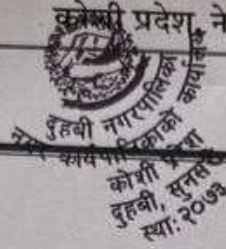 कोशी प्रदेश, ने
दुहबी नगरपालिका
नगर कार्यपालिकाको कार्यालय
कोशी प्रदेश
दुहबी, सुनसरी
स्था: २०७३